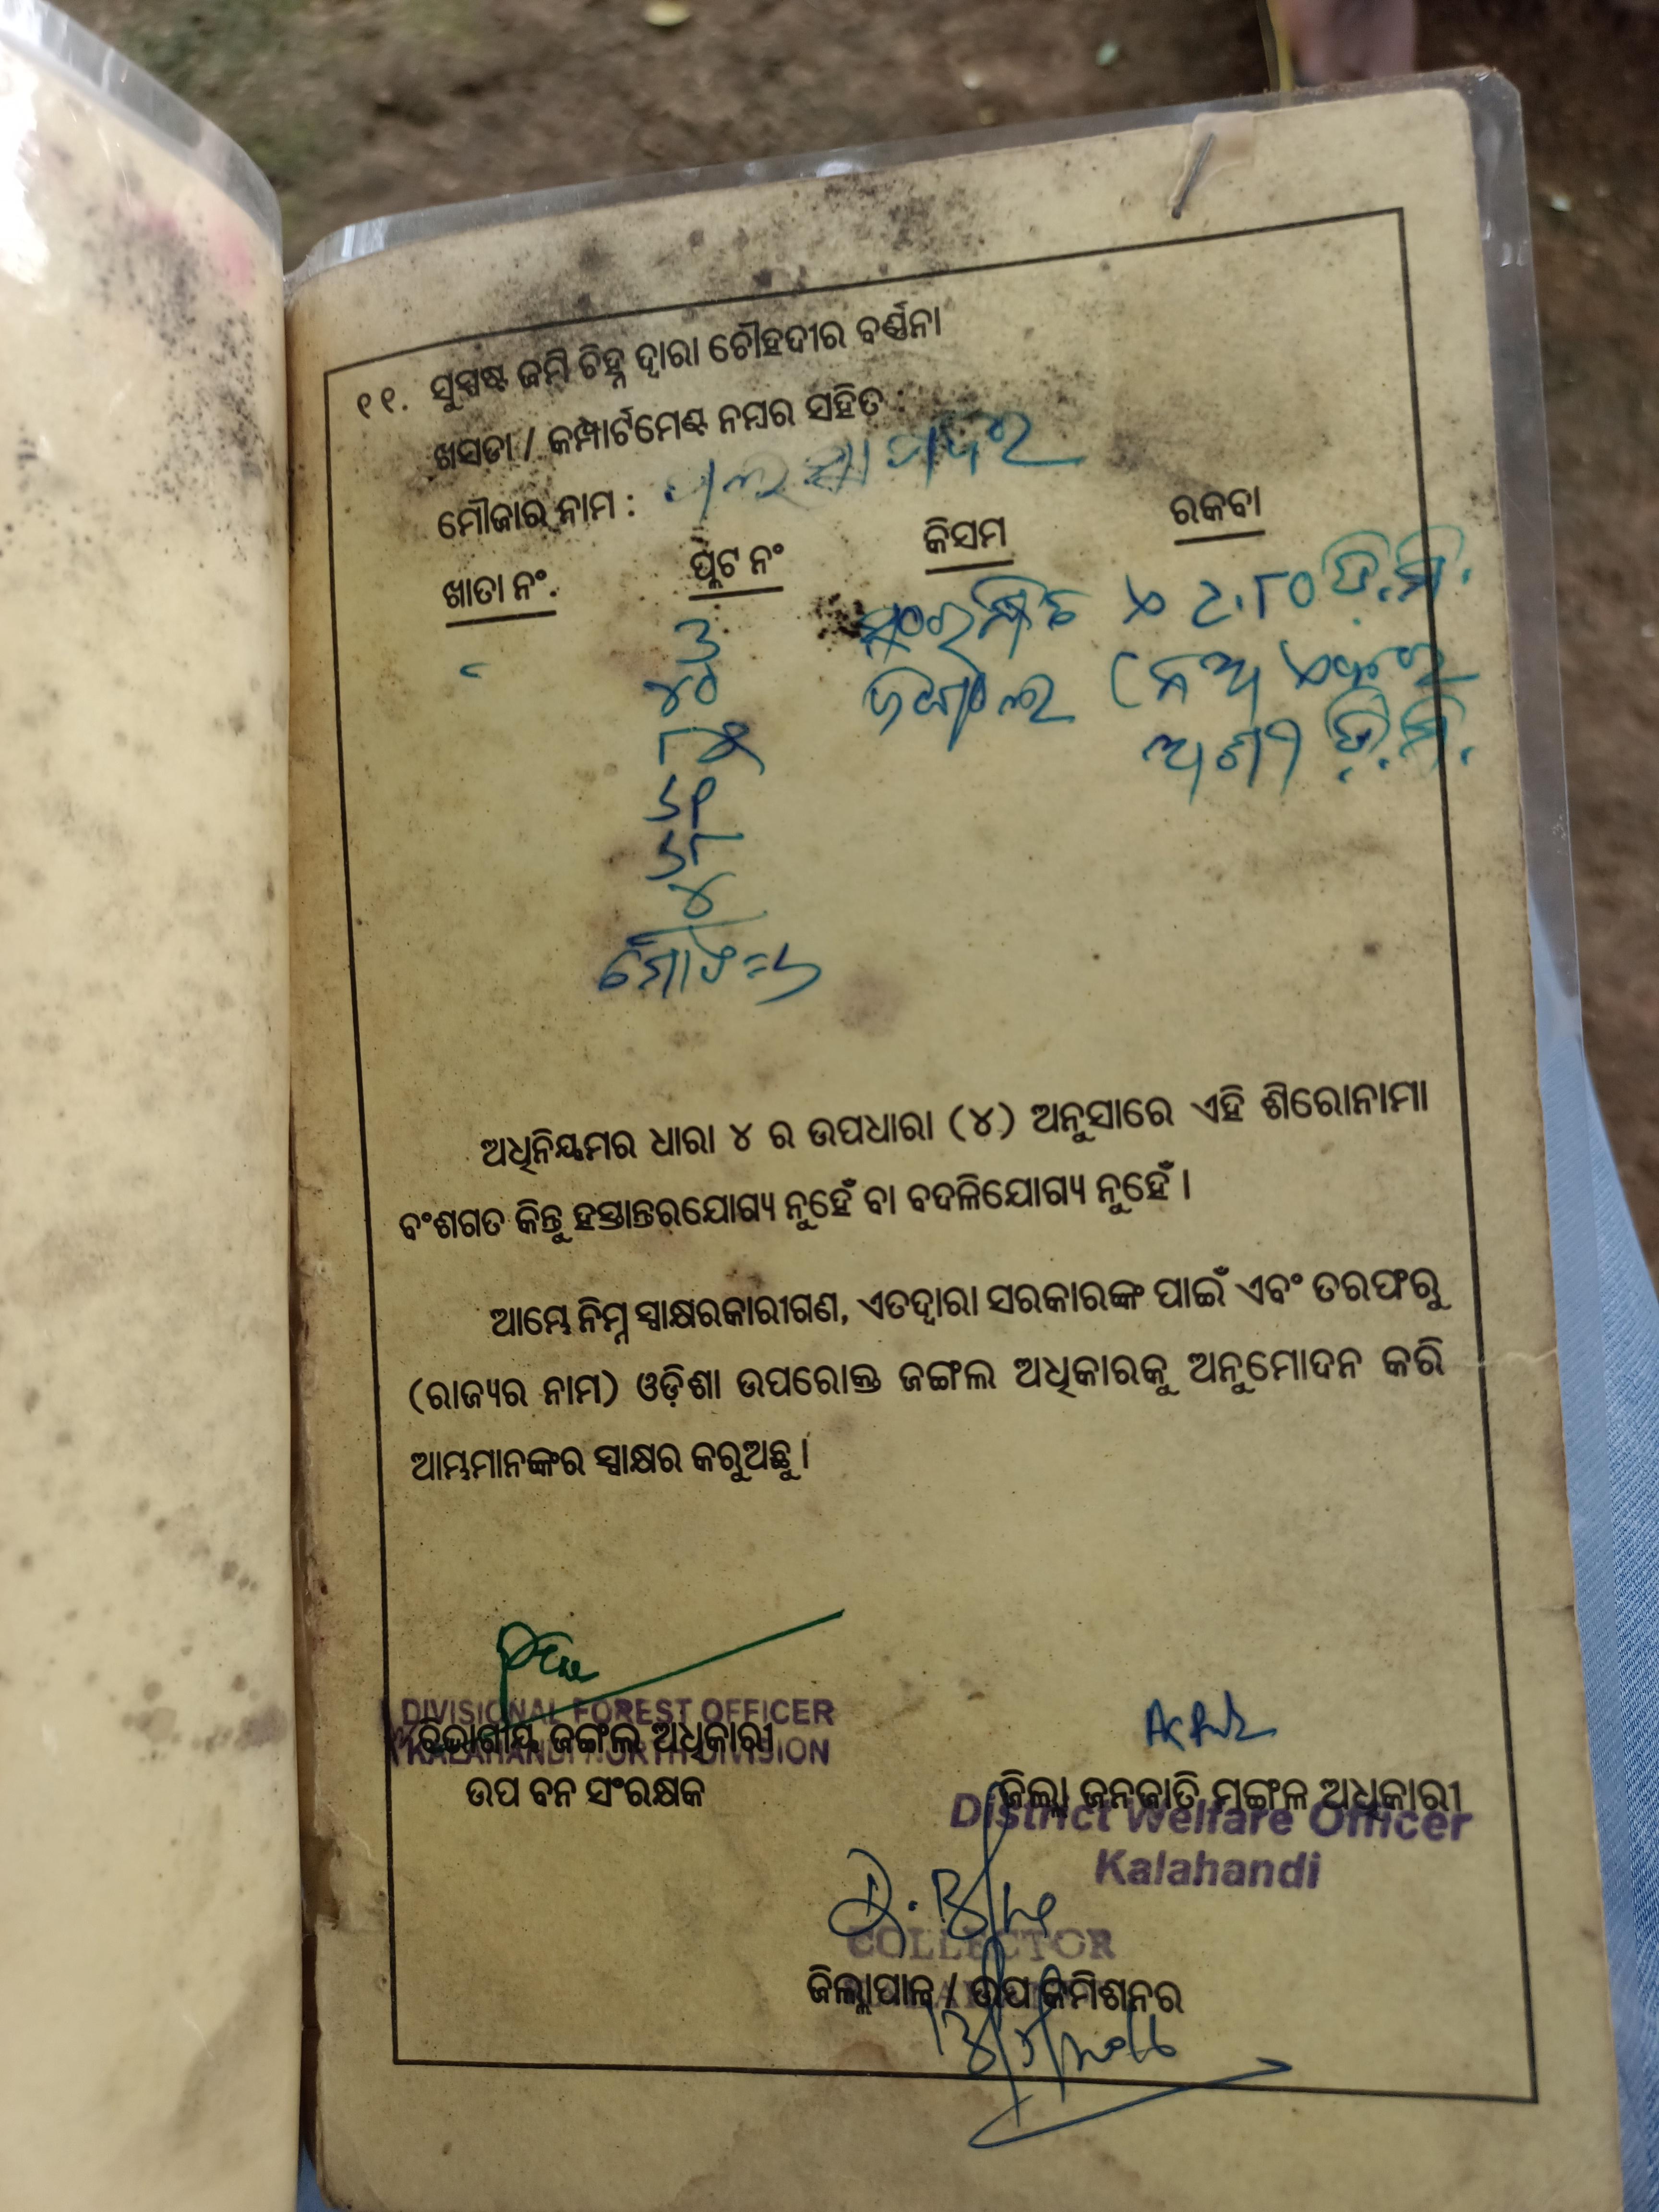 ୧୧. ସୁସ୍ପଷ୍ଟ ଜମି ଚିହ୍ନ ଦ୍ୱାରା ଚୌହଦୀର ବର୍ଣ୍ଣନା
ଖସଡା / କମ୍ପାର୍ଟମେଣ୍ଟ ନମ୍ବର ସହିତ :
ମୌଜାର ନାମ :
ଖାତା ନଂ. ପ୍ଲଟ ନଂ କିସମ ରକବା
୩
୪୦
ଜଙ୍ଗଲ
୬୧
୬୮
୪
ମୋଟ=୬
ଅଧିନିୟମର ଧାରା ୪ ର ଉପଧାରା (୪) ଅନୁସାରେ ଏହି ଶିରୋନାମା
ବଂଶଗତ କିନ୍ତୁ ହସ୍ତାନ୍ତରଯୋଗ୍ୟ ନୁହେଁ ବା ବଦଳିଯୋଗ୍ୟ ନୁହେଁ ।
ଆମ୍ଭେ ନିମ୍ନ ସ୍ୱାକ୍ଷରକାରୀଗଣ, ଏତଦ୍ୱାରା ସରକାରଙ୍କ ପାଇଁ ଏବଂ ତରଫରୁ
(ରାଜ୍ୟର ନାମ) ଓଡ଼ିଶା ଉପରୋକ୍ତ ଜଙ୍ଗଲ ଅଧିକାରକୁ ଅନୁମୋଦନ କରି
ଆମ୍ଭମାନଙ୍କର ସ୍ୱାକ୍ଷର କରୁଅଛୁ ।
DIVISIONAL FOREST OFFICER
ବିଭାଗୀୟ ଜଙ୍ଗଲ ଅଧିକାରୀ
KALAHANDI NORTH DIVISION
ଉପ ବନ ସଂରକ୍ଷକ
ଜିଲ୍ଲା ଜନଜାତି ମଙ୍ଗଳ ଅଧିକାରୀ
District Welfare Officer
Kalahandi
COLLECTOR
ଜିଲ୍ଲାପାଳ / ଉପ କମିଶନର